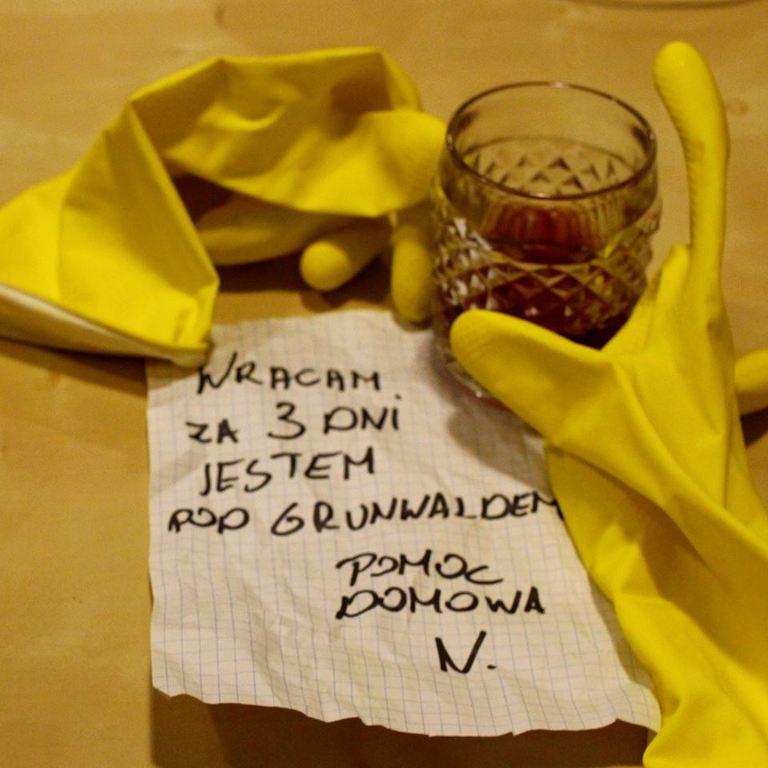 WRACAM
ZA 3 DNI
JESTEM
POD GRUNWALDEM
POMOC
DOMOWA
N.